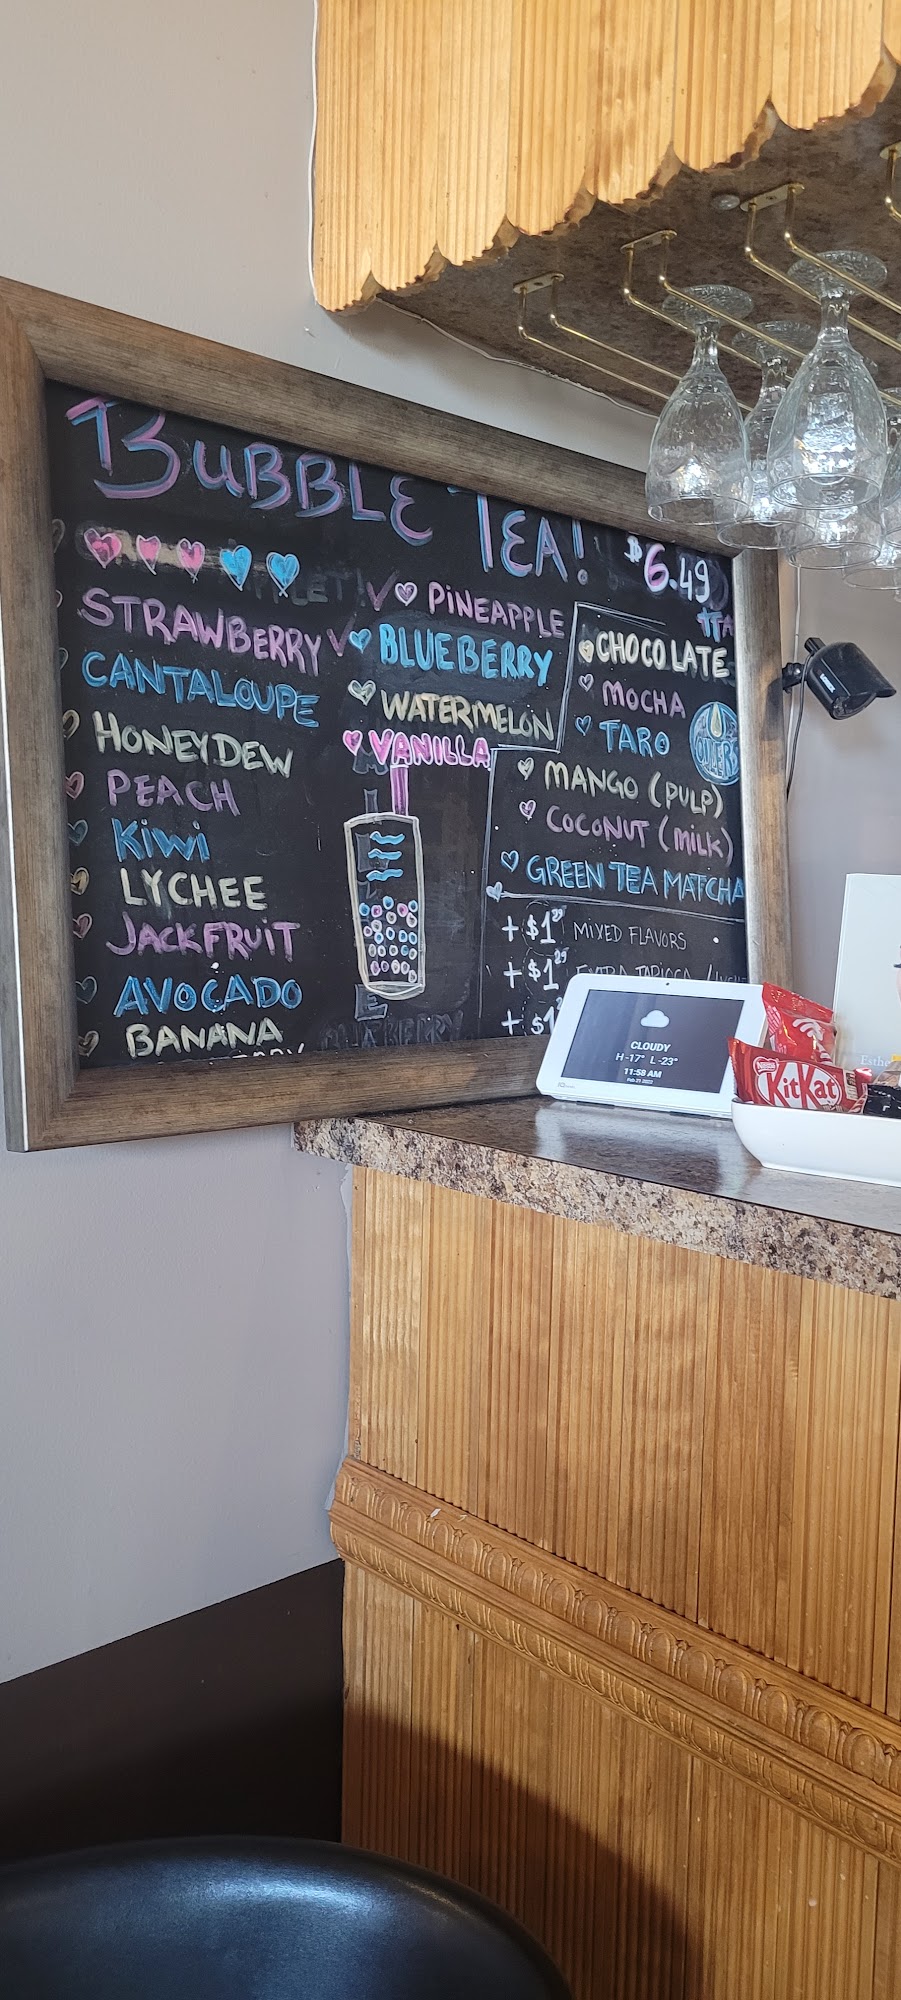 BUBBLE TEA! $6.49
STRAWBERRY
CANTALOUPE
HONEYDEW
PEACH
KIWI
LYCHEE
JACKFRUIT
AVOCADO
BANANA
PINEAPPLE
BLUEBERRY
WATERMELON
VANILLA
CHOCOLATE
MOCHA
TARO
MANGO (PULP)
COCONUT (MILK)
GREEN TEA MATCHA
+ $1.25 MIXED FLAVORS
+ $1.25 EXTRA TAPIOCA /
+ $1
CLOUDY
H -17° L -23°
11:58 AM
Feb 21 2022
Nestlé
KitKat
Esthe